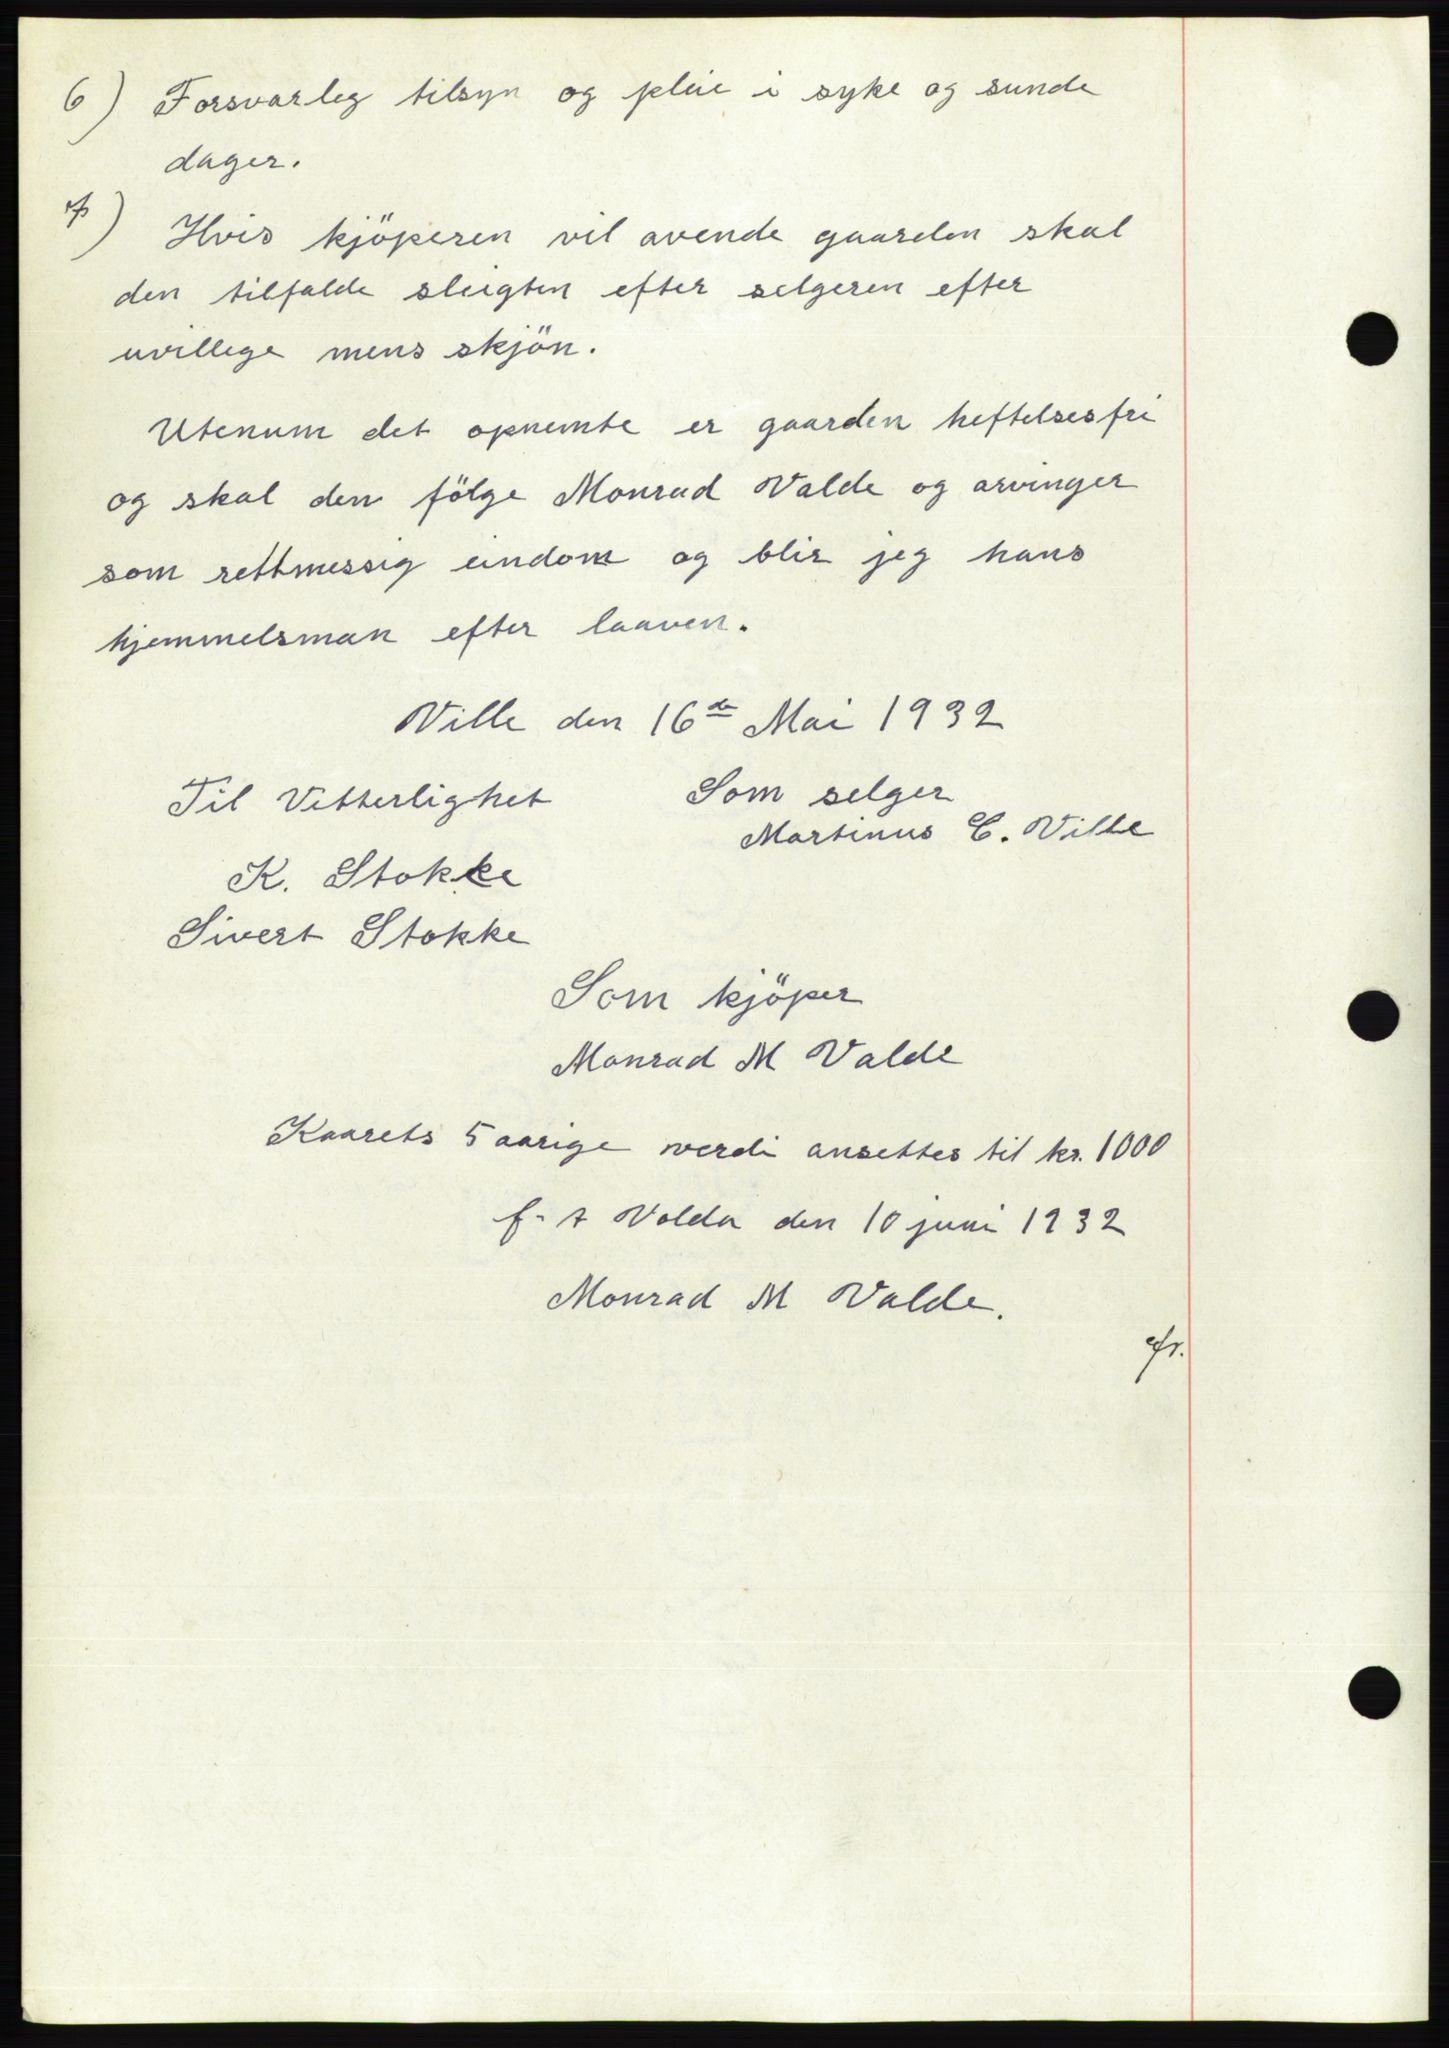 6) Forsvarleg tilsyn og pleie i syke og sunde
dager.
7) Hvis kjöperen vil avende gaarden skal
den tilfalde sleigten efter selgeren efter
uvillege mens skjön.
Utenum det opnemte er gaarden heftelsesfri
og skal den fölge Monrad Valde og arvinger
som rettmessig eindom og blir jeg hans
hjemmelsman efter laaven.
Ville den 16de Mai 1932
Til Vitterlighet Som selger
Martinus C. Ville
K. Stokke
Sivert Stokke
Som kjöper
Monrad M Valde
Kaarets 5 aarige verdi ansettes til kr. 1000
f. t Volda den 10 juni 1932
Monrad M Valde.